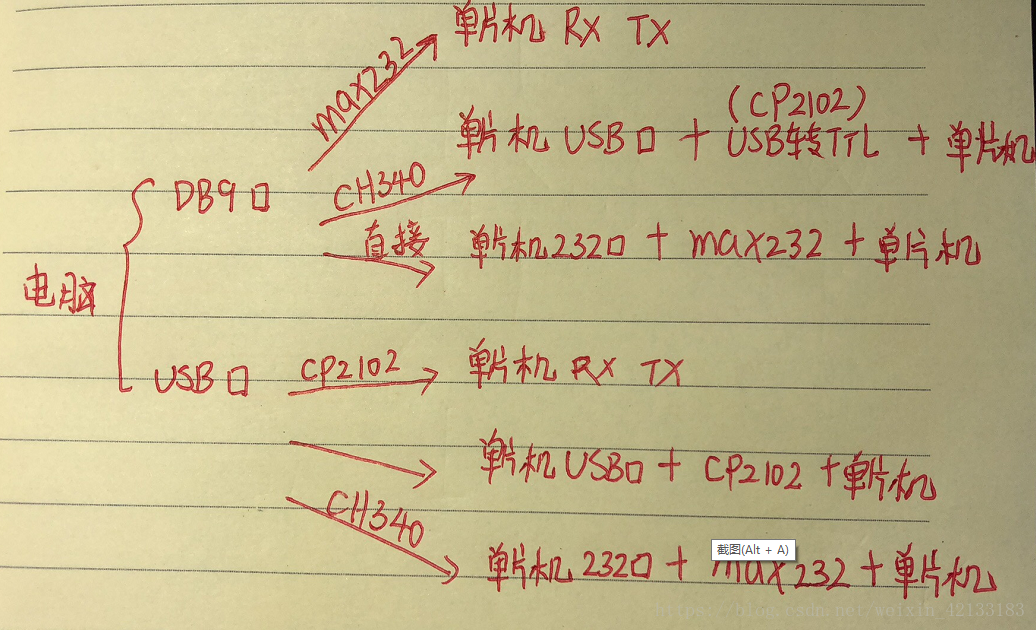 单片机 RX TX
max232
(CP2102)
单片机 USB口 + USB转TTL + 单片机
CH340
DB9口
直接
单片机232口 + max232 + 单片机
电脑
CP2102
单片机 RX TX
USB口
单片机USB口 + CP2102 + 单片机
CH340
截图(Alt + A)
单片机 232口 + max232 + 单片机
https://blog.csdn.net/weixin_42133183